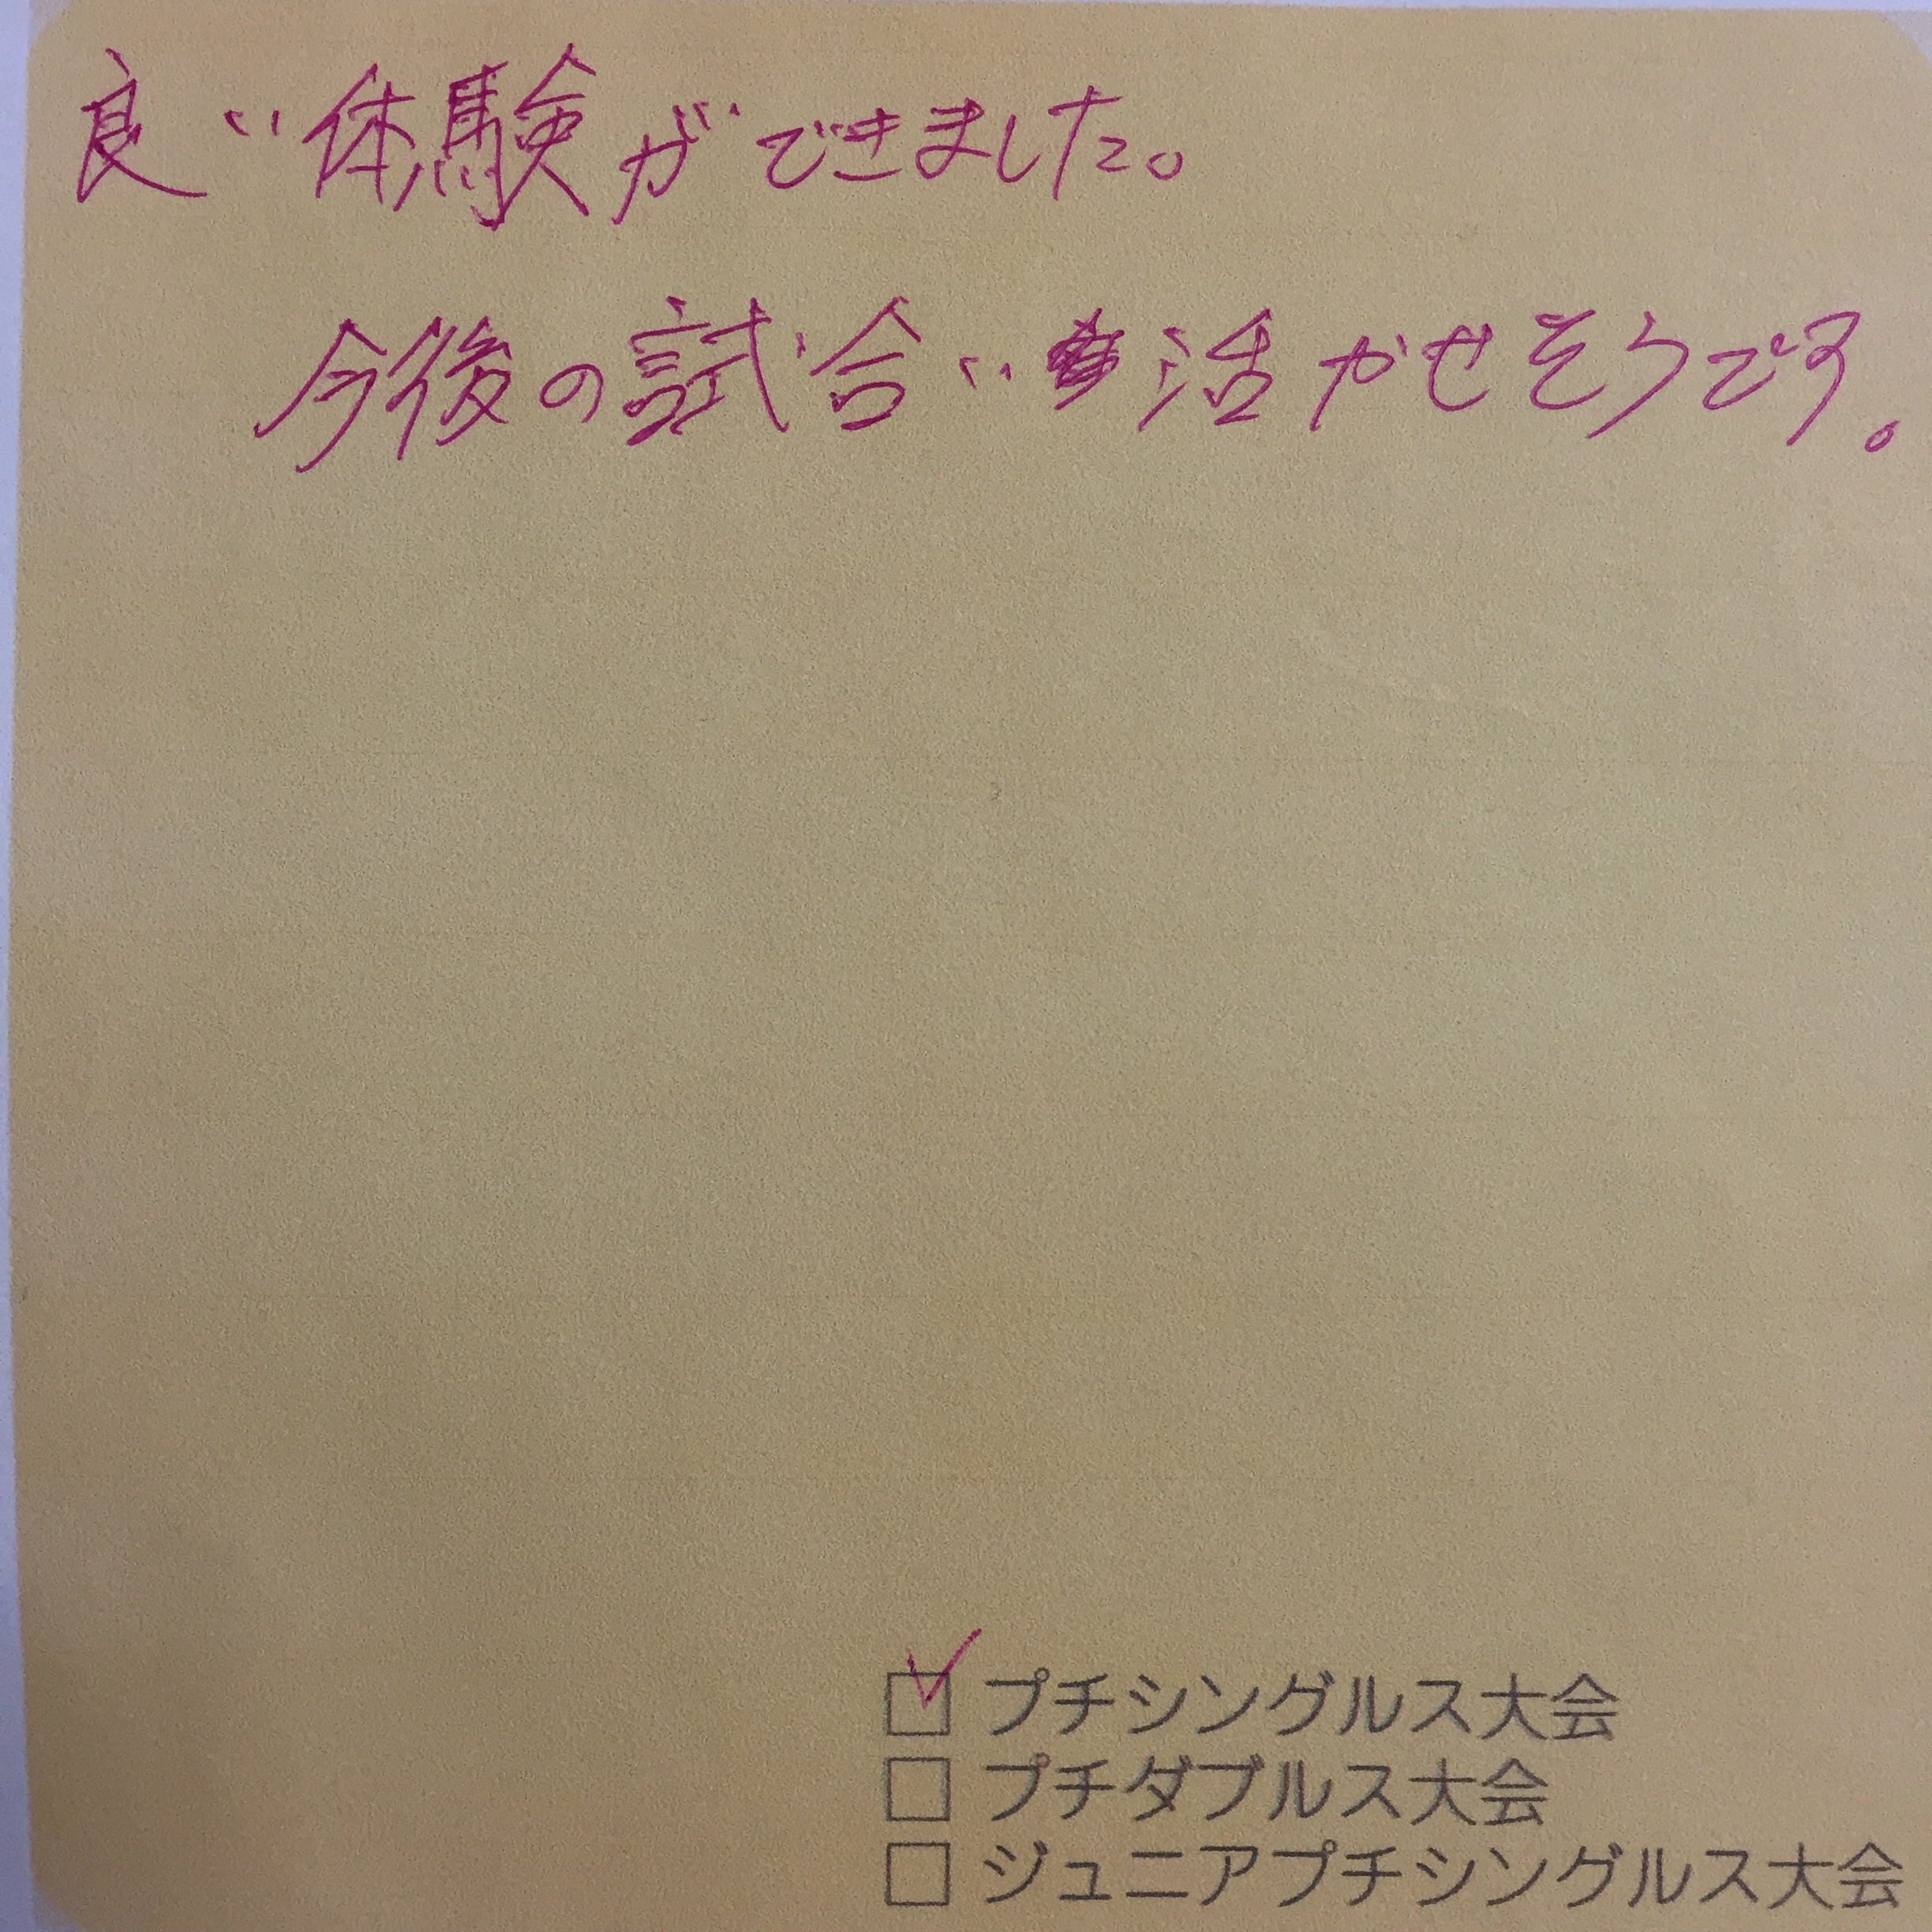 良い体験ができました。
今後の試合い活かせそうです。
☑ プチシングルス大会
☐ プチダブルス大会
☐ ジュニアプチシングルス大会